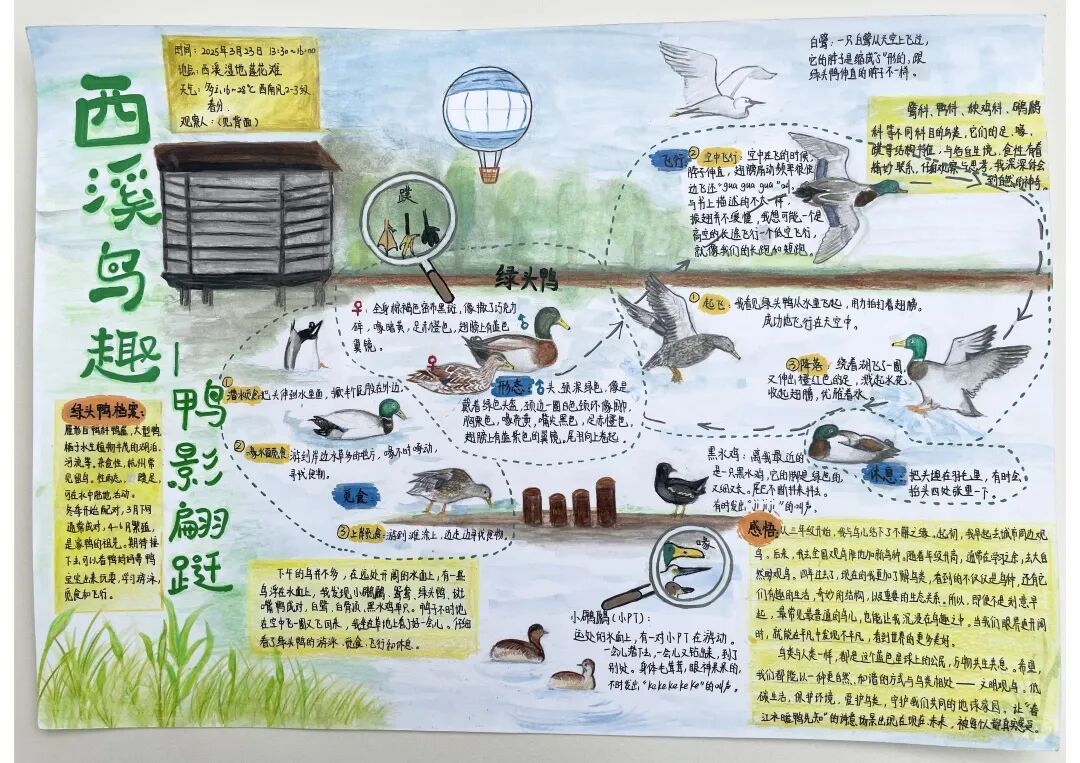 西溪鸟趣
—鸭影翩跹
时间：2025年3月23日 13:30~16:00
地点：西溪湿地莲花滩
天气：多云，16~28℃ 西南风2-3级
春分
观察人：（见背面）
白鹭：一只白鹭从天空上飞过，
它的脖子是缩成"Z"形的，跟
绿头鸭伸直的脖子不一样。
鹭科、鸭科、秧鸡科、䴙䴘
科等不同科目的鸟类，它们的足、喙、
蹼等结构特征，与各自生境、食性有着
精妙联系，仔细观察与思考，我深深体会
到自然的神奇。
蹼
绿头鸭
飞行
② 空中飞行：空中在飞的时候
脖子伸直，翅膀扇动频率很快
边飞还"gua gua gua"叫。
与书上描述的不太一样，
振翅并不缓慢，我想可能一个是
高空的长途飞行一个低空飞行，
就像我们的长跑和短跑。
① 起飞：我看见绿头鸭从水里飞起，用力拍打着翅膀，
成功地飞行在天空中。
③ 降落：绕着湖飞了一圈，
又伸出橙红色的足，溅起水花，
收起翅膀，优雅着水。
♀：全身棕褐色密布黑斑，像撒了巧克力
碎，喙暗黄，足赤橙色，翅膀上有蓝色
翼镜。
♂
♀
形态：♂头、颈深绿色，像是
戴着绿色头盔，颈边一圈白色颈环像围巾
胸栗色，喙亮黄，嘴尖黑色，足赤橙色，
翅膀上有蓝紫色的翼镜。尾羽向上卷起
① 潜水觅食：把头伸到水里面，撅半个屁股在外边。
② 啄水面觅食：游到岸边水草多的地方，喙不时啄动，
寻找食物。
觅食：
③ 上岸觅食：游到滩涂上，边走边寻找食物。
休息：把头埋在羽毛里，有时会
抬头四处张望一下。
黑水鸡：离我最近的
是一只黑水鸡，它的脚是绿色的
又细又大。尾巴不断抖来抖去。
有时发出"ji ji ji"的叫声
喙
绿头鸭档案：
雁形目鸭科鸭属，大型鸭
栖于水生植物丰茂的湖泊、
河流等。杂食性，杭州常
见留鸟。
可在水中泡泡活动。
冬季开始配对，3月下旬
通常成对，4-6月繁殖，
是家鸭的祖先。期待接
下去可以看鸭妈妈带鸭
宝宝出来玩耍，学习游泳，
觅食和飞行。
下午的鸟并不多，在远处开阔的水面上，有一些
鸟浮在水面上，我发现小䴙䴘、鸳鸯、绿头鸭、斑
嘴鸭成对，白鹭、白骨顶、黑水鸡单只。鸭子不时地
在空中飞一圈又飞回来，我坐在草地上看了好一会儿。仔细
看了绿头鸭的游泳、觅食、飞行和休息。
小䴙䴘（小PT）：
远处的水面上，有一对小PT在游动。
一会儿潜下去，一会儿又钻出来，到了
别处。身体毛茸茸，眼神呆呆的，
不时发出"ke ke ke ke ke"的叫声。
感悟：从三年级开始，我与鸟儿结下了不解之缘。起初，我早起去城市周边观
鸟。后来，我去全国观鸟胜地加新鸟种。随着年级升高，通常在学习之余，去大自
然中观鸟。四年过去了，现在的我更加了解鸟类，看到的不仅仅是鸟种，还有它
们有趣的生活，奇妙的结构，以及重要的生态关系。所以，即使不是刻意早
起，最常见最普通的鸟儿，也能让我沉浸在鸟趣之中。当我们眼界更开阔
时，就能在平凡中发现不平凡，看到世界的更多美好。
鸟类与人类一样，都是这个蓝色星球上的公民，万物共生共息。希望，
我们都能以一种更自然、和谐的方式与鸟类相处——文明观鸟。低
碳生活，保护环境，爱护鸟类，守护我们共同的地球家园。让"春
江水暖鸭先知"的诗意场景出现在现在未来，被每个人都真实感受。